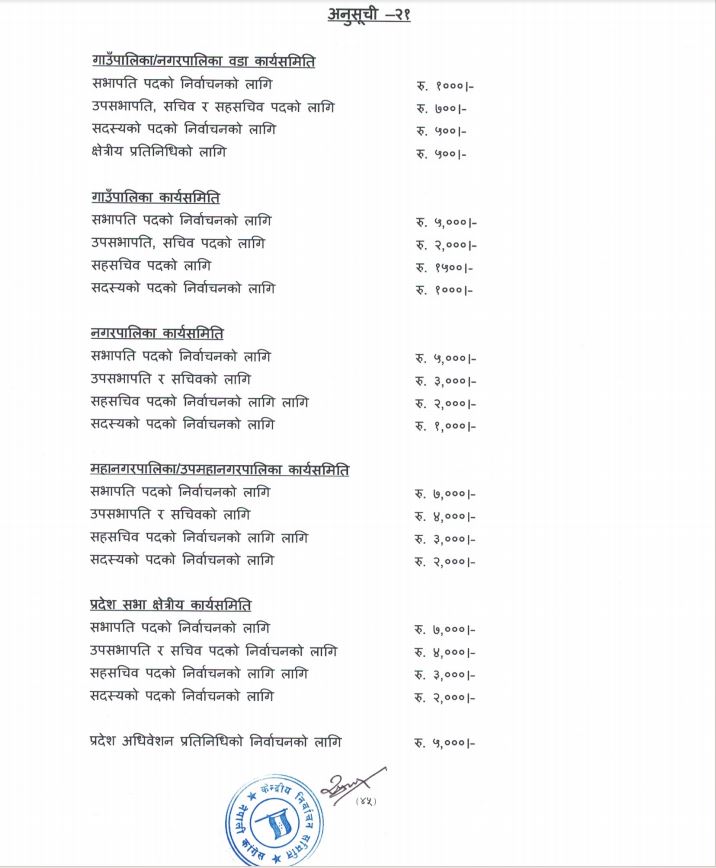 अनुसूची –२१
गाउँपालिका/नगरपालिका वडा कार्यसमिति
सभापति पदको निर्वाचनको लागि रु. १०००|–
उपसभापति, सचिव र सहसचिव पदको लागि रु. ७००|–
सदस्यको पदको निर्वाचनको लागि रु. ५००|–
क्षेत्रीय प्रतिनिधिको लागि रु. ५००|–
गाउँपालिका कार्यसमिति
सभापति पदको निर्वाचनको लागि रु. ५,०००|–
उपसभापति, सचिव पदको लागि रु. २,०००|–
सहसचिव पदको लागि रु. १५००|–
सदस्यको पदको निर्वाचनको लागि रु. १०००|–
नगरपालिका कार्यसमिति
सभापति पदको निर्वाचनको लागि रु. ५,०००|–
उपसभापति र सचिवको लागि रु. ३,०००|–
सहसचिव पदको निर्वाचनको लागि लागि रु. २,०००|–
सदस्यको पदको निर्वाचनको लागि रु. १,०००|–
महानगरपालिका/उपमहानगरपालिका कार्यसमिति
सभापति पदको निर्वाचनको लागि रु. ७,०००|–
उपसभापति र सचिवको लागि रु. ४,०००|–
सहसचिव पदको निर्वाचनको लागि लागि रु. ३,०००|–
सदस्यको पदको निर्वाचनको लागि रु. २,०००|–
प्रदेश सभा क्षेत्रीय कार्यसमिति
सभापति पदको निर्वाचनको लागि रु. ७,०००|–
उपसभापति र सचिव पदको निर्वाचनको लागि रु. ४,०००|–
सहसचिव पदको निर्वाचनको लागि लागि रु. ३,०००|–
सदस्यको पदको निर्वाचनको लागि रु. २,०००|–
प्रदेश अधिवेशन प्रतिनिधिको निर्वाचनको लागि रु. ५,०००|–
(४५)
केन्द्रीय निर्वाचन समिति
नेपाली कांग्रेस